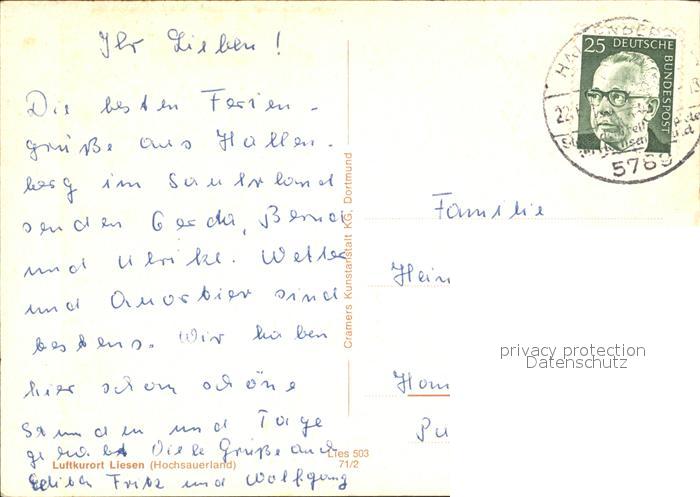 Ihr Lieben!
Die besten Ferien-
grüße aus Hallen-
berg im Sauerland
senden Gerda, Bernd
und Ulrike. Wetter
und Quartier sind
bestens. Wir haben
hier schon schöne
Stunden und Tage
gehabt. Viele Grüße auch
Edith Fritz und Wolfgang
Luftkurort Liesen (Hochsauerland)
Lies 503
71/2
Cramers Kunstanstalt KG, Dortmund
25 DEUTSCHE
BUNDESPOST
HALLENBERG
22
5789
Familie
Hein
Hom
Pu
privacy protection
Datenschutz